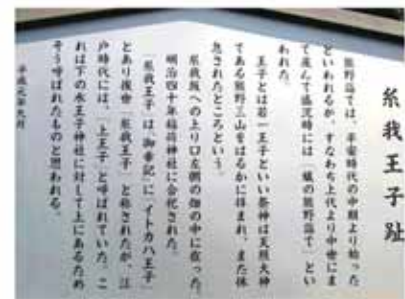 糸我王子趾
熊野詣では、平安時代の中期より始った
といわれるが、すなわち上代より中世にま
て及んで盛況時には「蟻の熊野詣て」とい
われた。
王子とは若一王子といい祭神は天照大神
てある熊野三山をはるかに拝まれ、また休
息されたところという。
糸我坂への上り口左側の畑の中に在った。
明治四十年稲荷神社に合祀された。
「糸我王子」は「御幸記」に「イトカハ王子」
とあり後世「糸我王子」と称されたが、江
戸時代には、「上王子」と呼ばれていた。こ
れは下の水王子神社に対して上にあるため
そう呼ばれたものと思われる。
平成元年六月